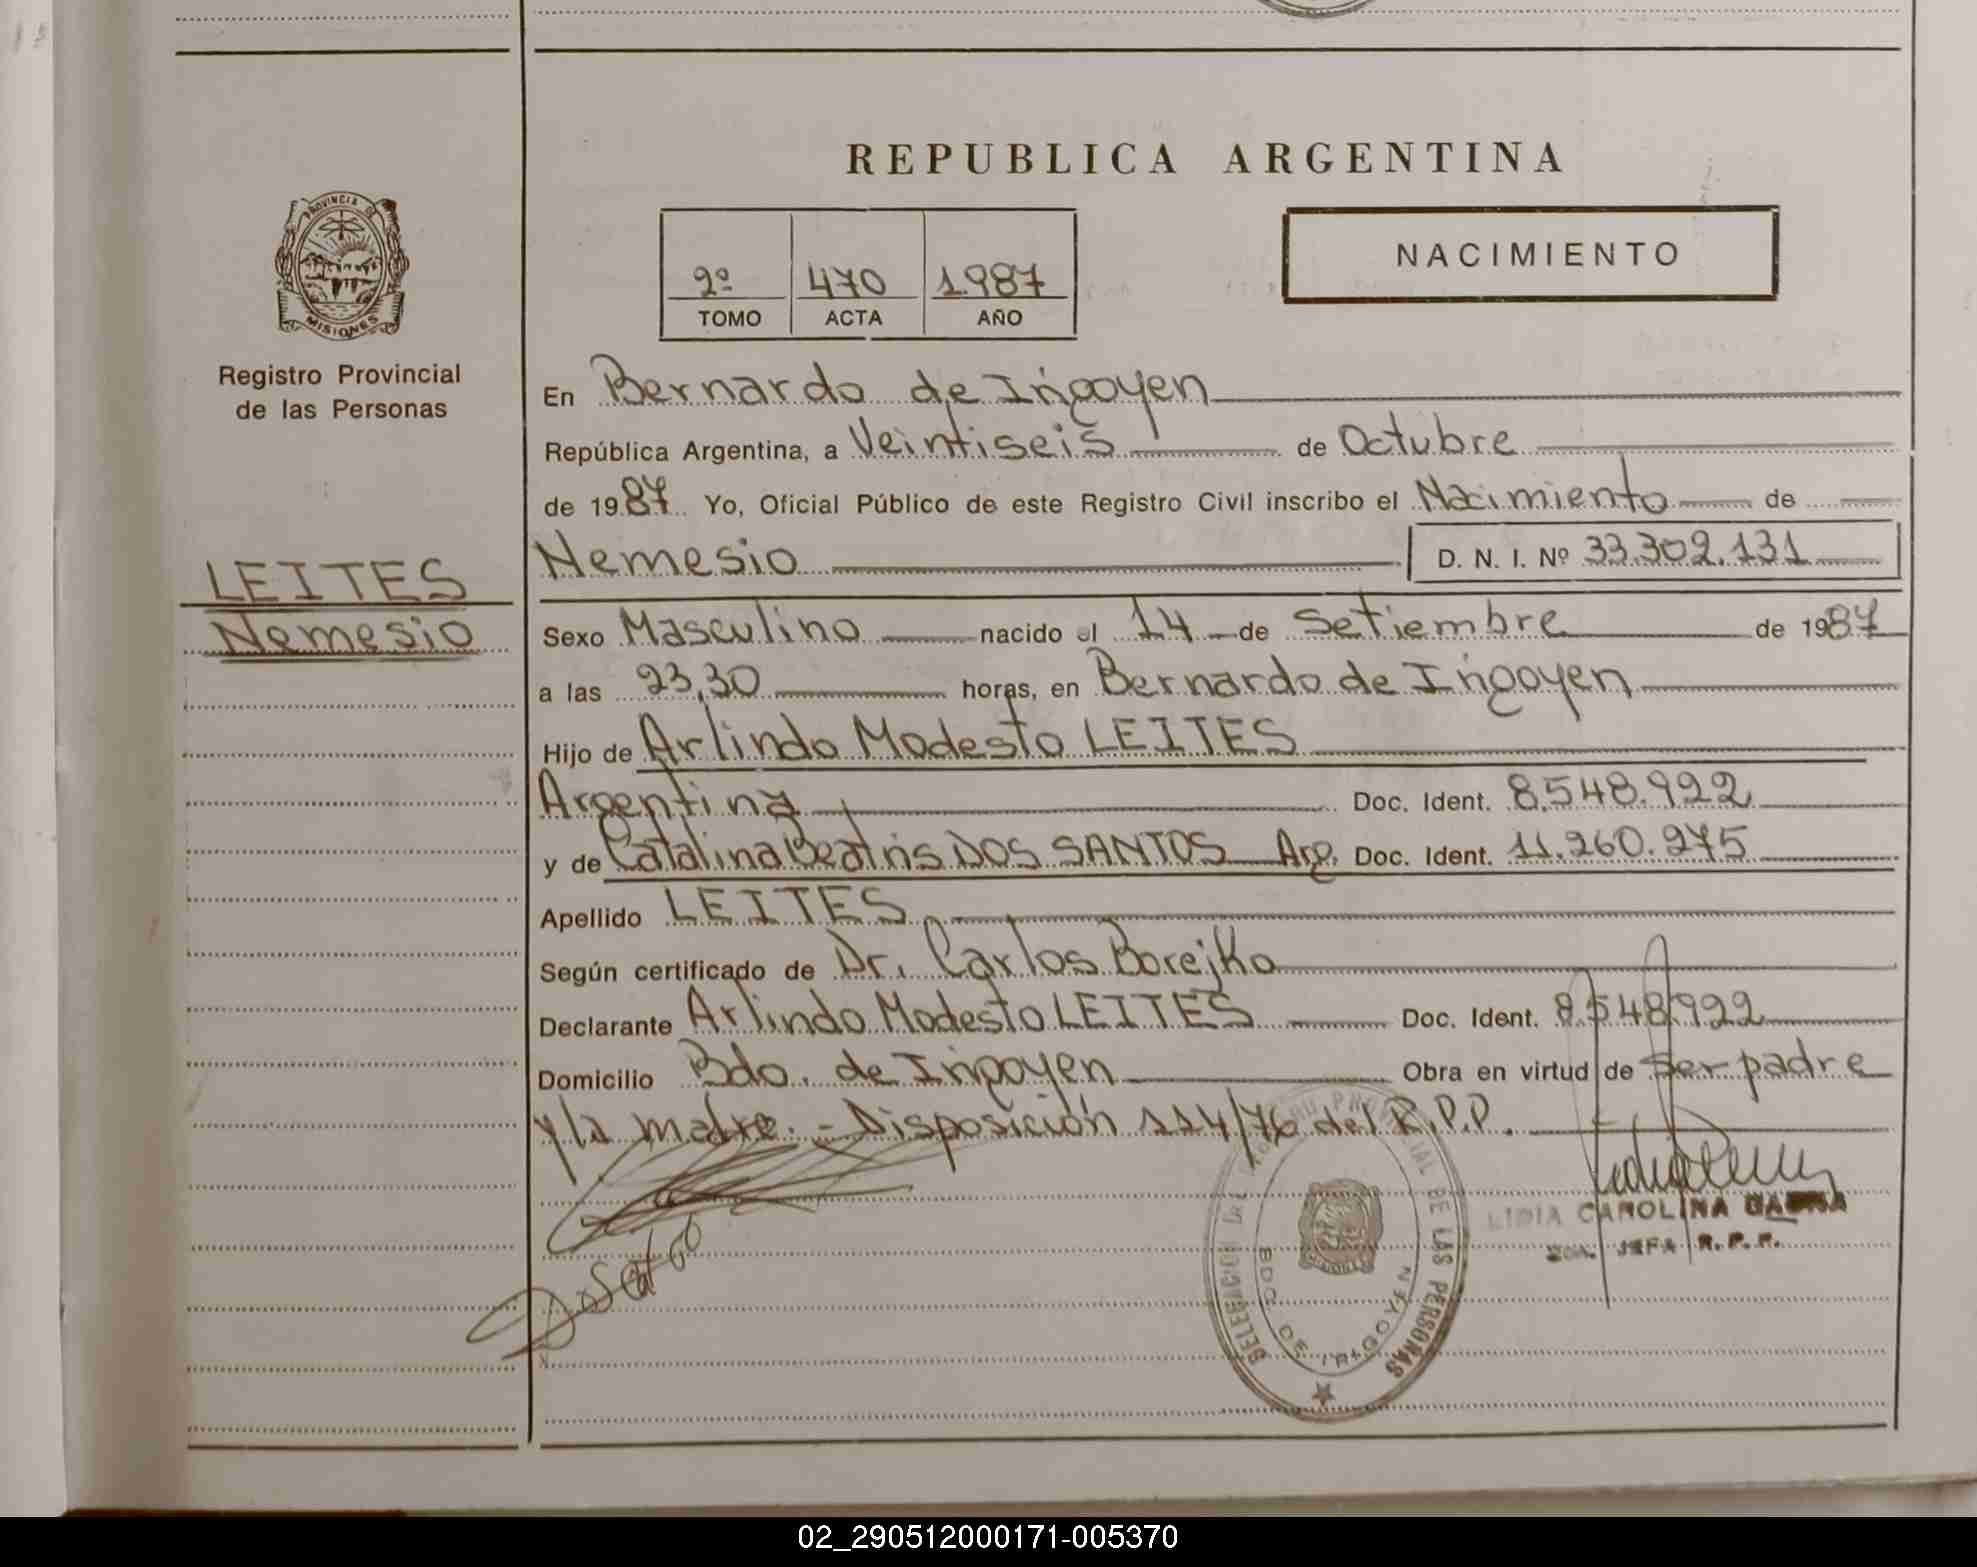 REPUBLICA ARGENTINA
PROVINCIA DE
MISIONES
Registro Provincial
de las Personas
2º 470 1.987
TOMO ACTA AÑO
NACIMIENTO
En Bernardo de Irigoyen
República Argentina, a Veintiseis de Octubre
de 1987 Yo, Oficial Público de este Registro Civil inscribo el Nacimiento de
LEITES
Nemesio
Nemesio D. N. I. Nº 33.302.131
Sexo Masculino nacido el 14 de Setiembre de 1987
a las 23,30 horas, en Bernardo de Irigoyen
Hijo de Arlindo Modesto LEITES
Argentina Doc. Ident. 8.548.922
y de Catalina Beatris DOS SANTOS Arg. Doc. Ident. 11.260.275
Apellido LEITES
Según certificado de Dr. Carlos Borejko
Declarante Arlindo Modesto LEITES Doc. Ident. 8.548.922
Domicilio Bdo. de Irigoyen Obra en virtud de ser padre
y la madre. - Disposición 114/76 del R.P.P.
DELEGACION DEL REGISTRO PROVINCIAL DE LAS PERSONAS
BDO. DE IRIGOYEN
LIDIA CAROLINA
JEFA R. P. P.
02_290512000171-005370